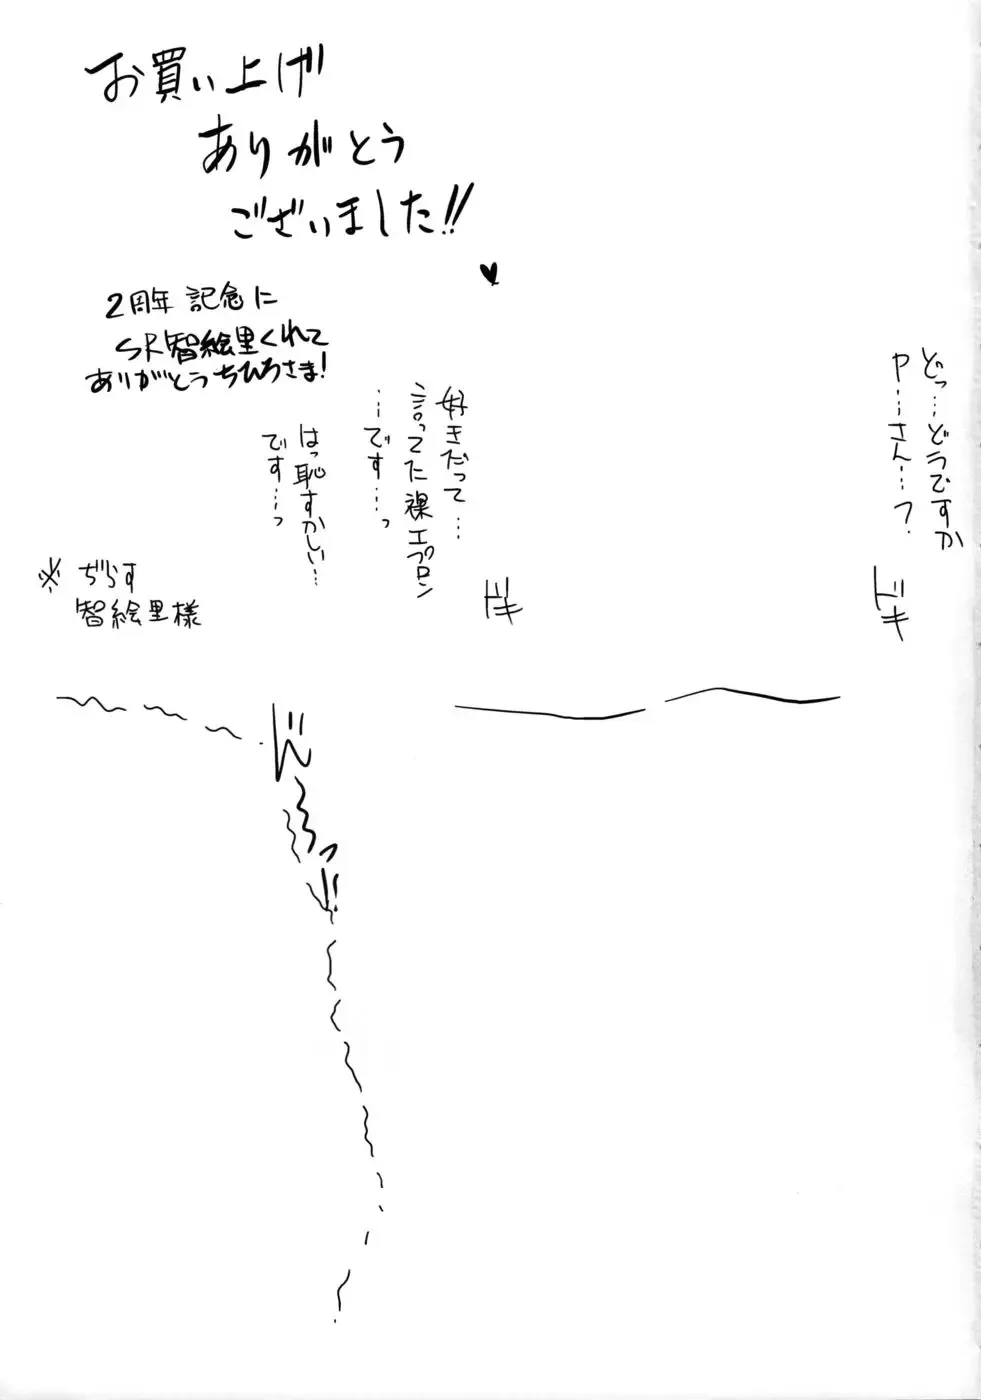 お買い上げ
ありがとう
ございました!!
♥
2周年 記念に
SR智絵里くれて
ありがとうちひろさま!
どっ…どうですか
P…さん…?
ドキ
好きだって…
言ってた裸エプロン
…です…っ
はっ恥ずかしい…
です…っ
ドキ
※ ぢらす
智絵里様